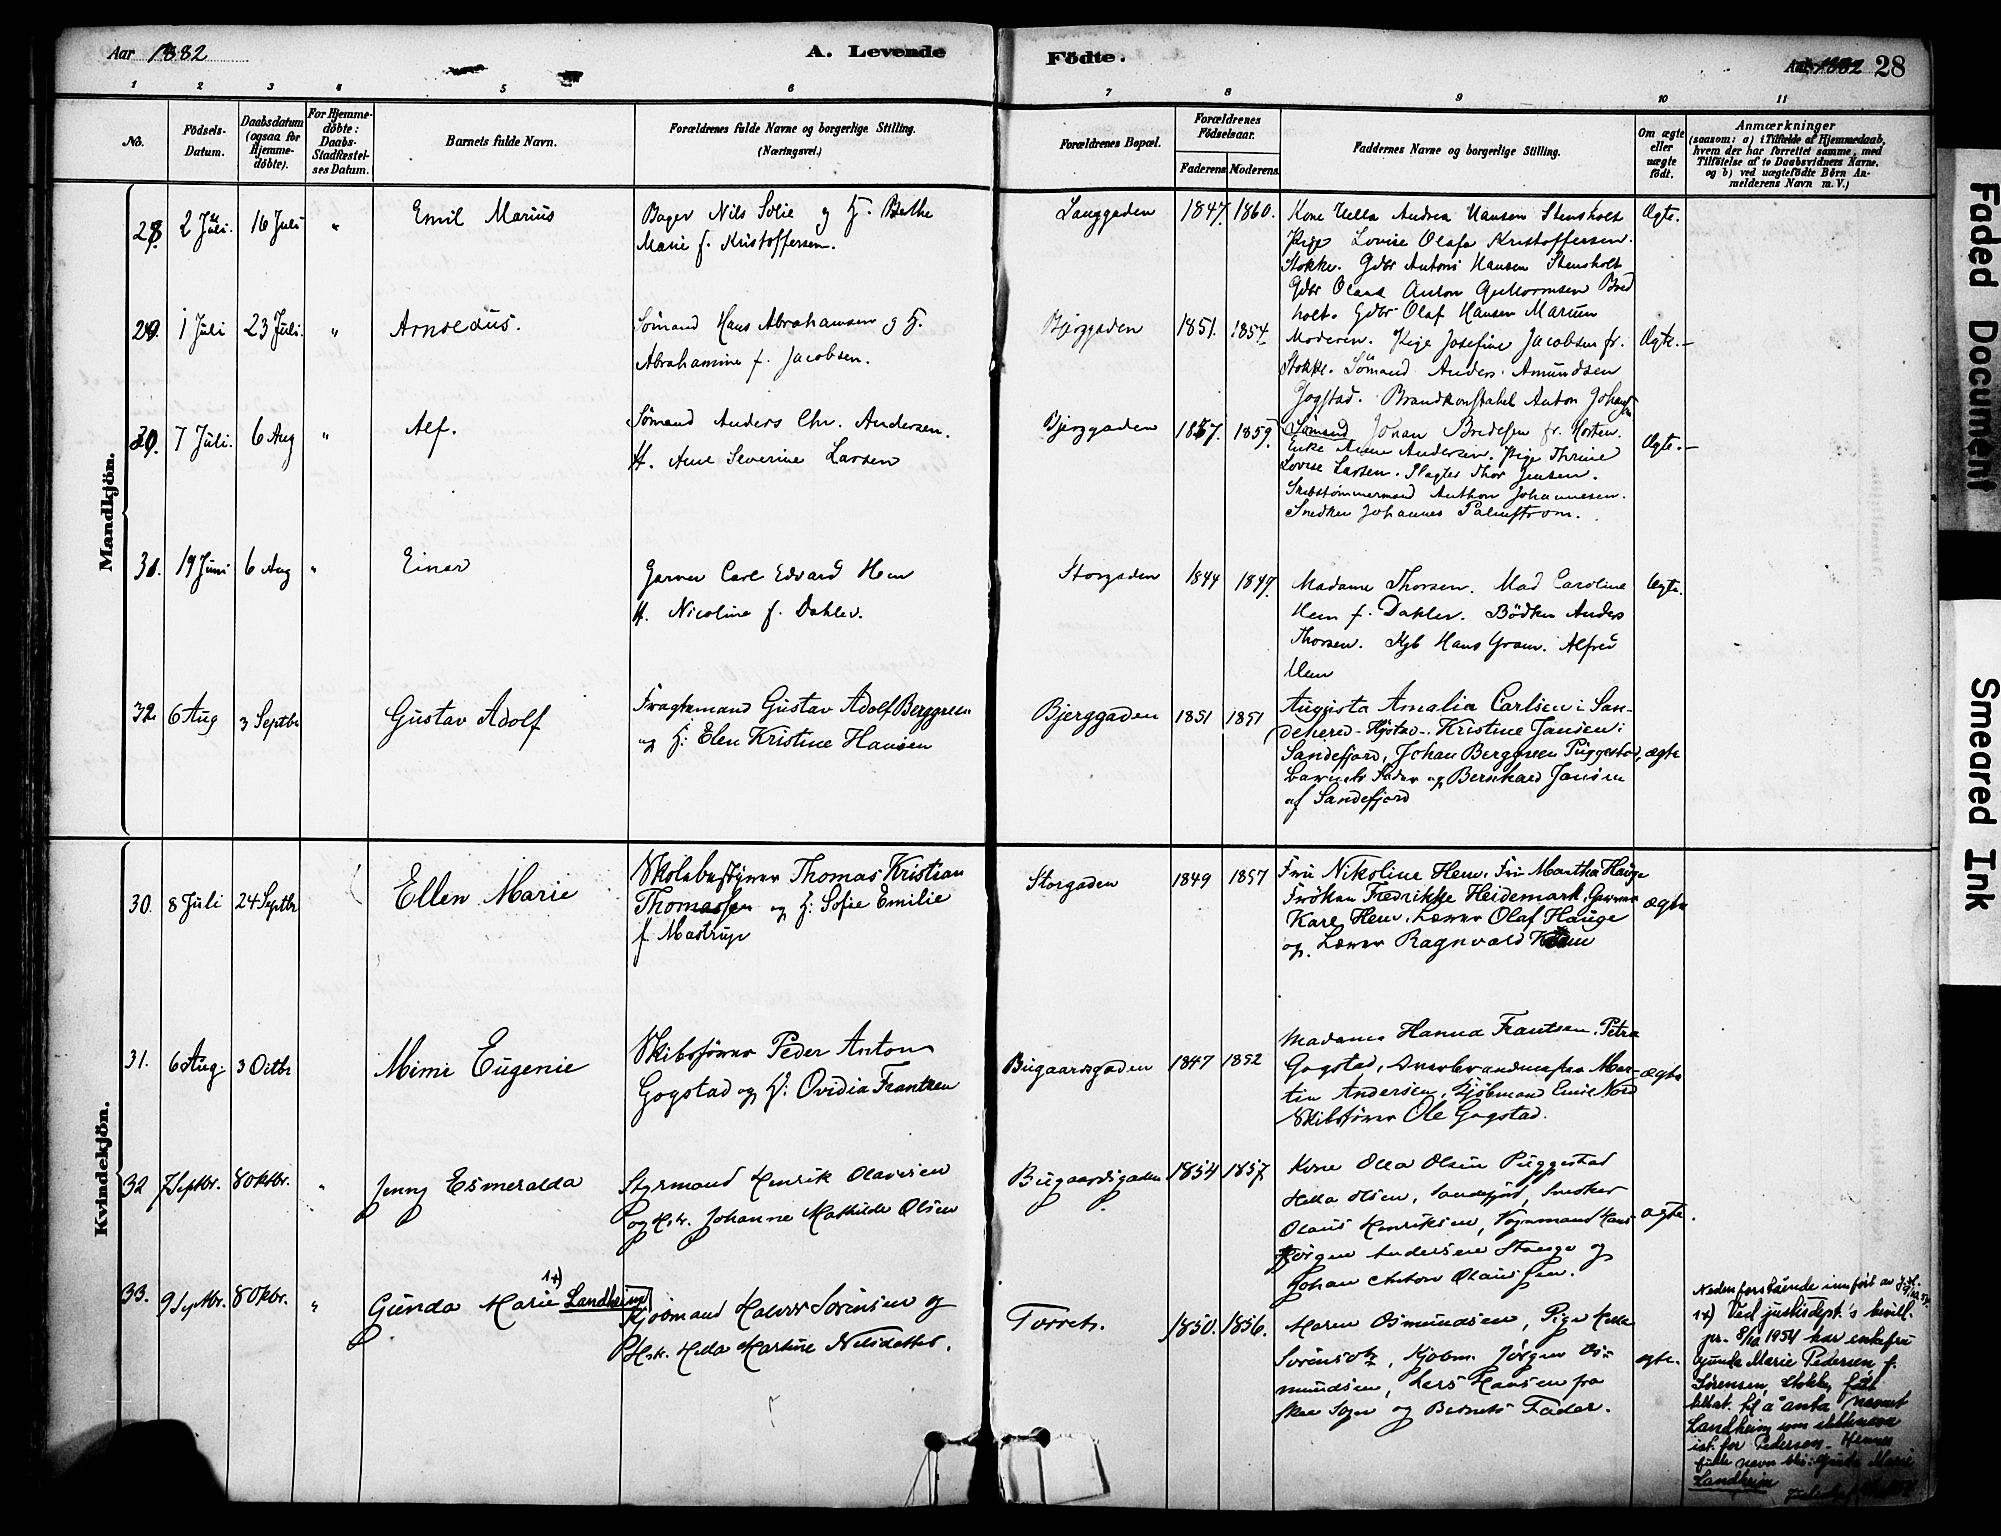 Aar 1882
A. Levende
Födte.
28
1 2 3 4 5 6 7 8 9 10 11
No.
Födsels-Datum.
Daabsdatum (ogsaa for Hjemme-döbte).
For Hjemme-döbte: Daabs-Stadfæstel-ses Datum.
Barnets fulde Navn.
Forældrenes fulde Navne og borgerlige Stilling. (Næringsvei.)
Forældrenes Bopæl.
Forældrenes Födselsaar.
Faderens
Moderens
Faddernes Navne og borgerlige Stilling.
Om ægte eller uægte födt.
Anmærkninger
(saasom: a) i Tilfælde af Hjemmedaab,
hvem der har forrettet samme, med
Tilföielse af to Daabsvidners Navne,
og b) ved uægtefödte Börn An-
melderens Navn m. V.)
Mandkjön.
28. 2 Juli. 16 Juli " Emil Marius
Bager Nils Solie og H. Bethe
Marie f. Kristoffersen.
Langgaden 1847. 1860.
Kone Hella Andrea Hansen Stensholt
Pige Lovise Olafa Kristoffersen.
Stokke. Gdbr Anton Hansen Stensholt
Gdbr Anton
holt. Gdbr Olaf Hansen
Ægte.
29. 1 Juli 23 Juli. " Arnoldus.
Sømand Hans Abrahamsen og H.
Abrahamine f. Jacobsen.
Bjerggaden 1851. 1854.
Moderen. Pige Josefine Jacobsen fr.
Stokke. Sømand Anders Amundsen
Jogstad. Brandkonstabel Anton
Ægte.
30. 7 Juli. 6 Aug " Alf.
Sømand Anders Chr. Andersen.
H. Anne Severine Larsen
Bjerggaden 1857. 1859.
Sømand Johan Bredesen fr. Horten.
Enke Anne Andersen. Pige Thrine
Lovise Larsen. Slagter Thor Jensen.
Skibstømmermand Anthon Johannesen.
Snedker Johannes Palmstrøm.
Ægte.
31. 19 Juni 6 Aug " Einar
Garver Carl Edvard Hem
H. Nicoline f. Dahler.
Storgaden 1844 1847.
Madame Thorsen. Mad Caroline
Hem f. Dahler. Bödker Anders
Thorsen. Hans Gram. Alfred
Hem
Ægte.
32. 6 Aug 3 Septbr Gustav Adolf
Fragtemand Gustav Adolf Berggreen
og H: Elen Kristine Hansen
Bjerggaden 1851 1851
Augusta Amalia Carlsen i San-
deherred - Hjøtad -. Kristine Jansen i
Sandefjord, Johan Berggreen Puggestad,
barnets Fader og Bernhard Jansen
af Sandefjord
ægte
Kvindekjön.
30. 8 Juli 24 Septbr Ellen Marie
Skolebestyrer Thomas Kristian
Thomassen og H: Sofie Emilie
f. Mastrup
Storgaden 1849 1857
Fru Nikoline Hem. Fru Martha Hauge
Frøken Fredrikke Heidemark, Garver
Karl Hem. Lærer Olaf Hauge
og Lærer Ragnvald
ægte
31. 6 Aug. 3 Octbr Mimi Eugenie
Skibsfører Peder Anton
Gogstad og H: Ovidia Frantzen
Bugaardsgaden 1847 1852
Madame Hanna Frantsen. Petra
Gogstad, Mar-
tin Andersen, Kjøbmand Emil Nord
Skibsfører Ole Gogstad.
ægte
32 7 Septbr. 8 Oktbr. " Jenny Esmeralda
Styrmand Henrik Olavesen
og H.tr. Johanne Mathilde Olsen
Bugaardsgaden 1854 1857
Kone Olea Olsen Puggestad
Hella Olsen, Sandefjord, Snedker
Olaus Henriksen, Vognmand Hans
Jørgen Andersen Stange og
Johan Anton Olaussen.
ægte.
33. 9 Septbr. 8 Okbr. " Gunda Marie 1+) Landheim
Kjøbmand Halvor Sørensen og
H.tr. Hella Martine Nilsdatter.
Torvet. 1850. 1856.
Maren Osmundsen, Pige Helle
Kjøbm. Jørgen Os-
mundsen, Lars Hansen fra
Sogn og Barnets Fader.
ægte.
Nedenforstående innført av
1+) Ved justisdept.'s bevill.
pr. 8/10 1954 har enkefru
Gunda Marie Pedersen f.
Sørensen, Stokke, fått
tillat. til å anta navnet
Landheim som slektsnavn
ist. for Pedersen. Hennes
fulle navn blir: Gunda Marie
Landheim
Faded Document
Smeared Ink